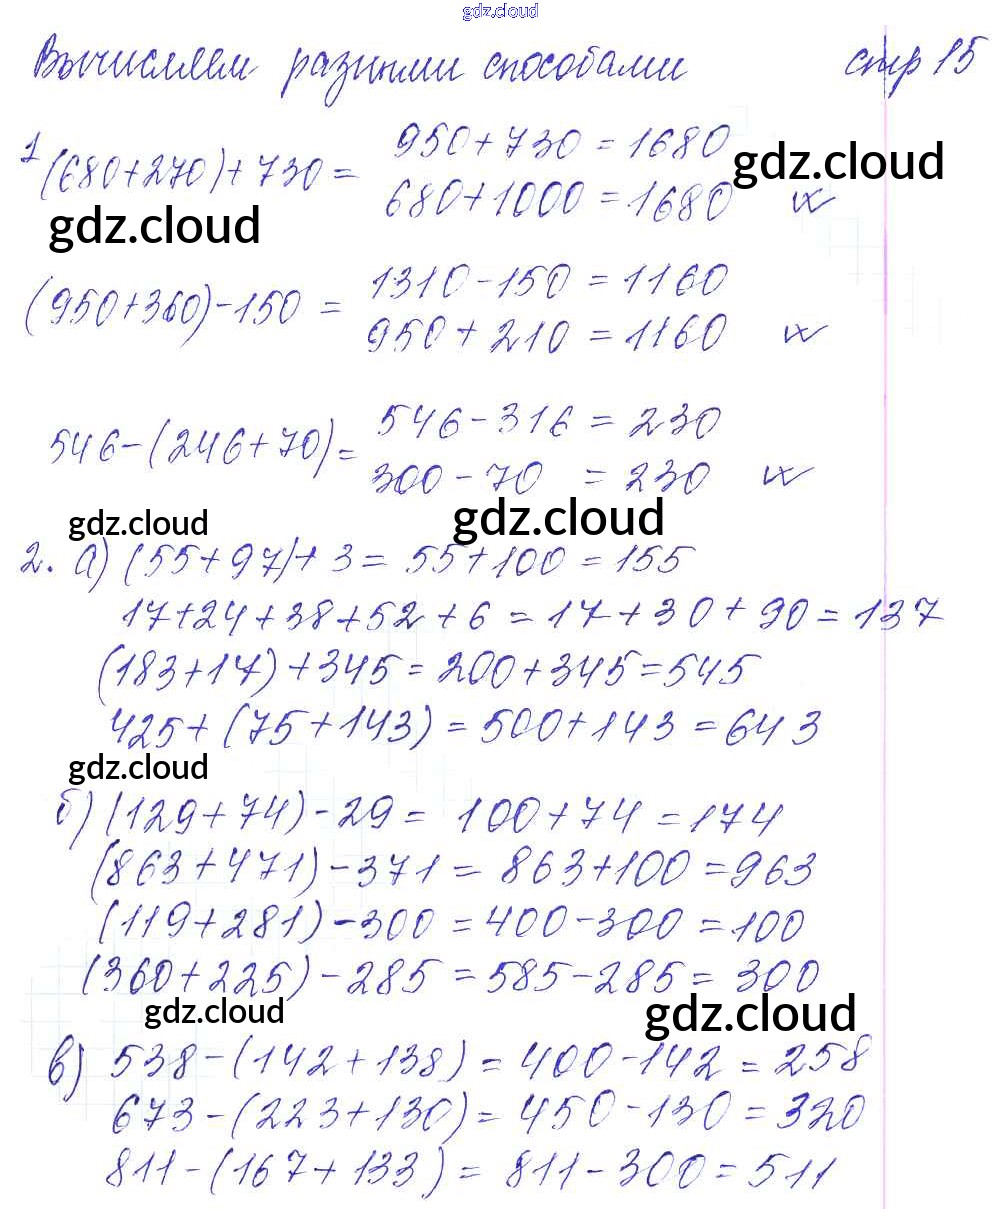 gdz.cloud
Вычисляем разными способами стр 15
1 (680+270)+730= 950+730=1680
680+1000=1680
gdz.cloud
gdz.cloud
(950+360)-150 = 1310-150=1160
950+210=1160
546-(246+70)= 546-316=230
300-70 =230
gdz.cloud
gdz.cloud
2. а) (55+97)+3=55+100=155
17+24+38+52+6=17+30+90=137
(183+17)+345=200+345=545
425+(75+143)=500+143=643
gdz.cloud
б) (129+74)-29= 100+74=174
(863+471)-371= 863+100=963
(119+281)-300=400-300=100
(360+225)-285=585-285=300
gdz.cloud
gdz.cloud
в) 538-(142+138)=400-142=258
673-(223+130)=450-130=320
811-(167+133)=811-300=511